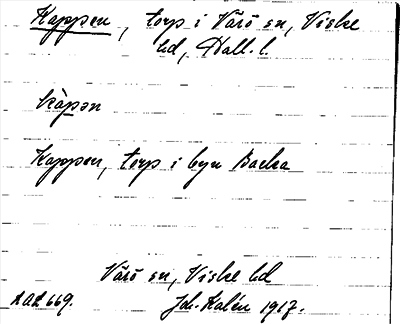 Kappen, torp i Värö sn, Viske
hd, Hall. l.
kàpən
Kappen, torp i byn Backa
Värö sn, Viske hd
AAL 669. Joh. Kalén 1917.